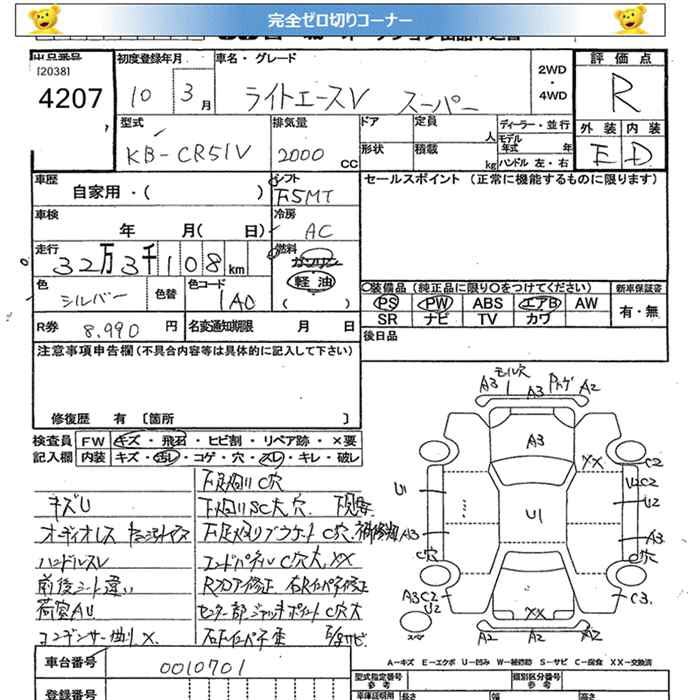 完全ゼロ切りコーナー
出品番号
[2038]
4207
初度登録年月
10 3 月
車名・グレード
ライトエースV スーパー
2WD
・
4WD
評価点
R
外装 内装
E D
型式
KB-CR51V
排気量
2000 cc
ドア
定員
人
形状
積載
kg
ディーラー・並行
モデル
年式 年
ハンドル 左・右
車歴
自家用・( )
シフト
F5MT
セールスポイント (正常に機能するものに限ります)
車検
年 月( 日)
冷房
AC
走行
32万3千108 km
燃料
ガソリン
軽油
( )
色
シルバー
色替
色コード
1A0
装備品 (純正品に限り○をつけてください)
PS PW ABS エアB AW
SR ナビ TV カワ
新車保証書
有・無
R券 8,990 円
名変通知期限 月 日
後日品
注意事項申告欄 (不具合内容等は具体的に記入して下さい)
修復歴 有 〔箇所 〕
検査員
記入欄
FW キズ・飛石・ヒビ割・リペア跡・×要
内装 キズ・汚レ・コゲ・穴・スレ・キレ・破レ
キズU
オーディオレス
ハンドルスレ
前後シート違い
荷室AU
コンデンサー曲り X
下廻り C穴
C大穴
エンドパネル C穴大 XX
Rフロア修正
センター部ジャッキポイント C穴大
サビ
モール穴
A3 A3 A2
A3
XX
C2
U2C2
U2
U1
U1
A3
C穴
A3
C穴
A3C2
U2
C3
XX
A2 A2
スペア
A−キズ E−エクボ U−凹み W−補修跡 S−サビ C−腐食 XX−交換済
車台番号
0010701
登録番号
型式指定番号
参考
類別区分番号
参考
車庫証明用
長さ
幅
高さ